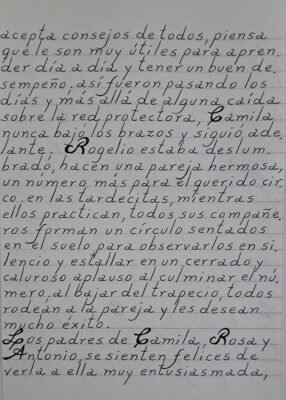 acepta consejos de todos, piensa
que le son muy útiles para apren.
der día a día y tener un buen de.
sempeño, así fueron pasando los
días y más allá de alguna caída
sobre la red protectora, Camila
nunca bajó los brazos y siguió ade.
lante. Rogelio estaba deslum.
brado, hacen una pareja hermosa,
un número más para el querido cir.
co. en las tardecitas, mientras
ellos practican, todos sus compañe.
ros forman un círculo sentados
en el suelo para observarlos en si.
lencio y estallar en un cerrado y
caluroso aplauso al culminar el nú.
mero, al bajar del trapecio, todos
rodean a la pareja y les desean
mucho éxito.
Los padres de Camila, Rosa y
Antonio, se sienten felices de
verla a ella muy entusiasmada,